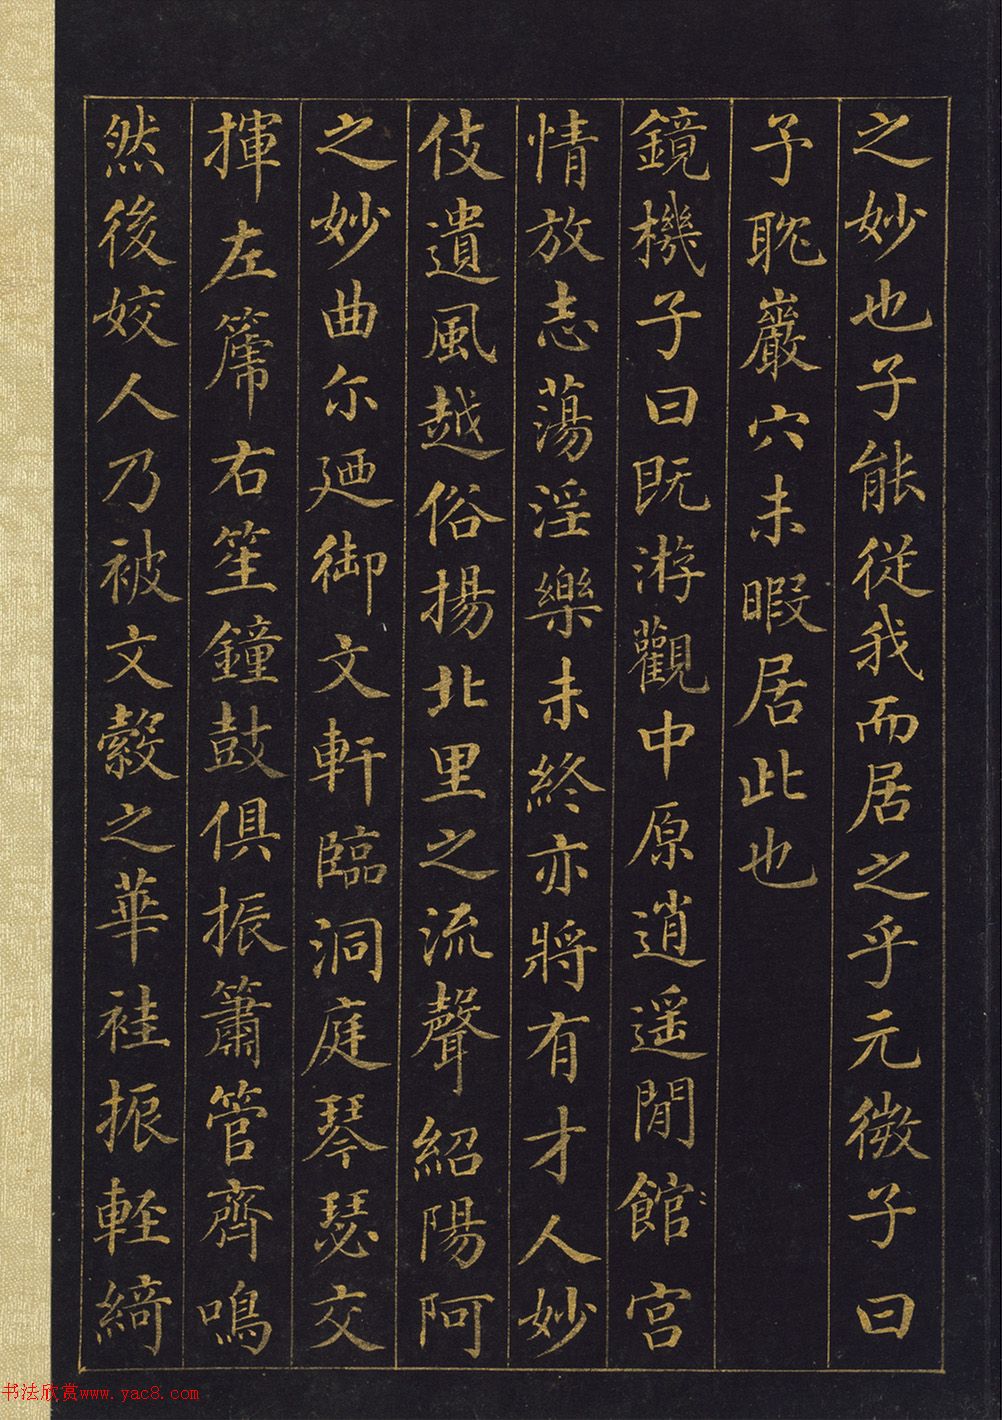 之妙也子能從我而居之乎元微子曰
予耽巖穴未暇居此也
鏡機子曰既游觀中原逍遥閒館宫
情放志蕩淫樂未終亦將有才人妙
伎遺風越俗揚北里之流聲紹陽阿
之妙曲尓廼御文軒臨洞庭琴瑟交
揮左篪右笙鐘鼓俱振簫管齊鳴
然後姣人乃被文縠之華袿振輕綺
书法欣赏www.yac8.com